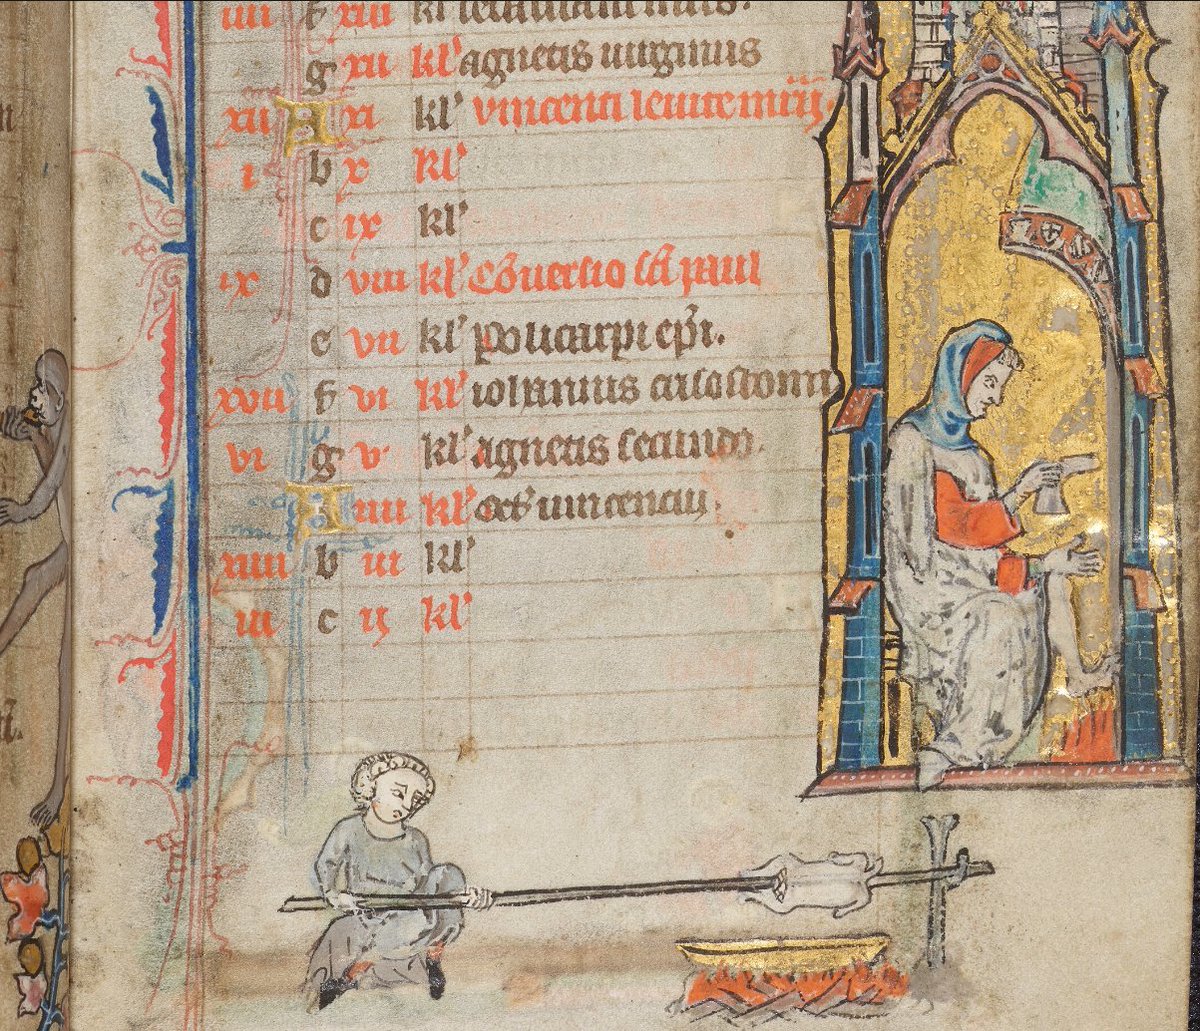 f xiii kl'
g xii kl' agnetis uirginis
xvii A xi kl' vincentii leuite mr̃is.
i b x kl'
c ix kl'
ix d viii kl' Cõuersio sc̃i paul
e vii kl' policarpi ep̃i.
xvii f vi kl' iohannis crisostomi
vi g v kl' agnetis secundo.
A iiii kl' oct' uincencii.
xiiii b iii kl'
iii c ij kl'